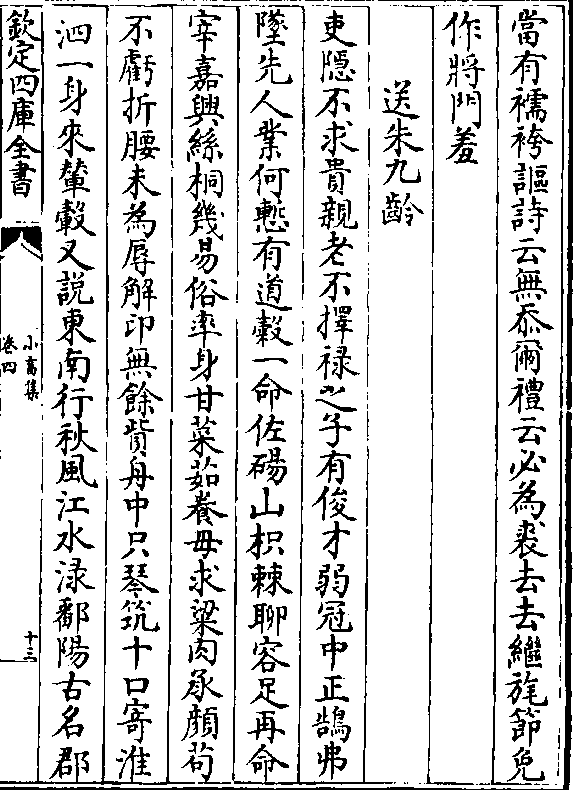 當有襦袴謳詩云無忝爾禮云必為裘去去繼旄節免
作將門羞
送朱九齡
吏隱不求貴親老不擇祿之子有俊才弱冠中正鵠弗
墜先人業何慙有道穀一命佐碭山枳棘聊容足再命
宰嘉興絲桐幾易俗率身甘菜茹養母求粱肉承顔苟
不虧折腰未為辱解印無餘貲舟中只琴筑十口寄淮
泗一身來輦轂又説東南行秋風江水渌鄱陽古名郡
欽定四庫全書
小畜集
卷四
十三